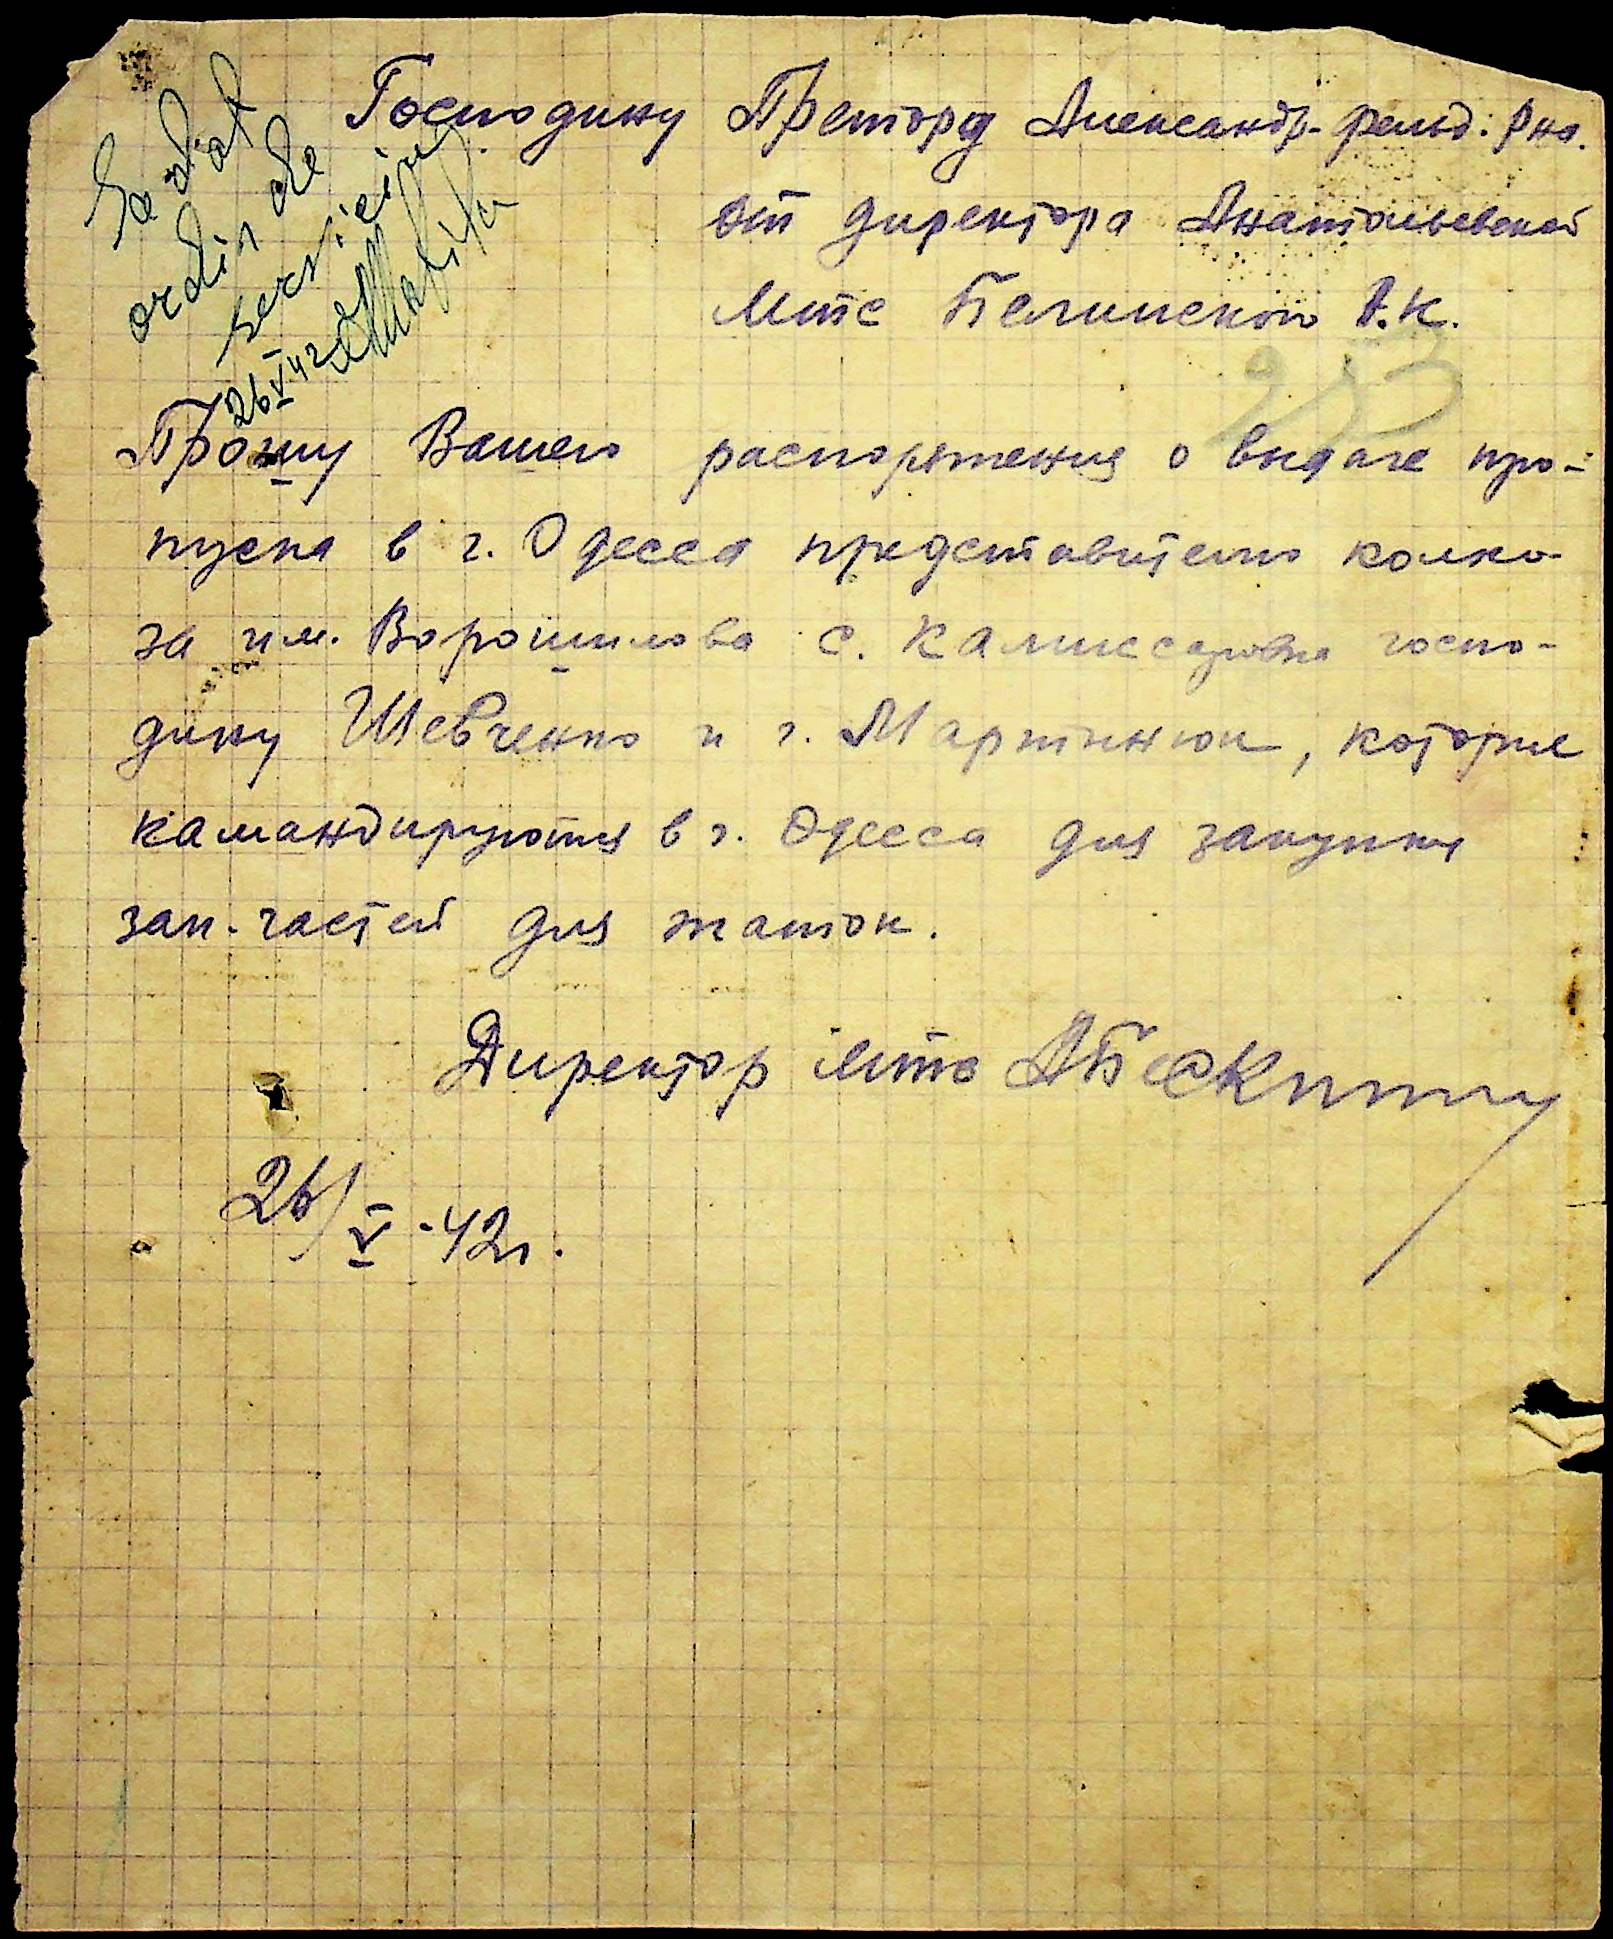 S'a dat
ordin de
serviciu
26 V 42
Господину Претору Александр. фельд. Рна.
от директора Анатольевской
Мтс Белинского А.К.
253
Прошу Вашего распоряжения о выдаче про-
пуска в г. Одесса представителю колхо-
за им. Ворошилова с. Камиссаровка госпо-
дину Шевченко и г. Мартинюк, которые
камандируются в г. Одесса для закупки
зап. частей для жаток.
Директор Мтс
26/V-42г.